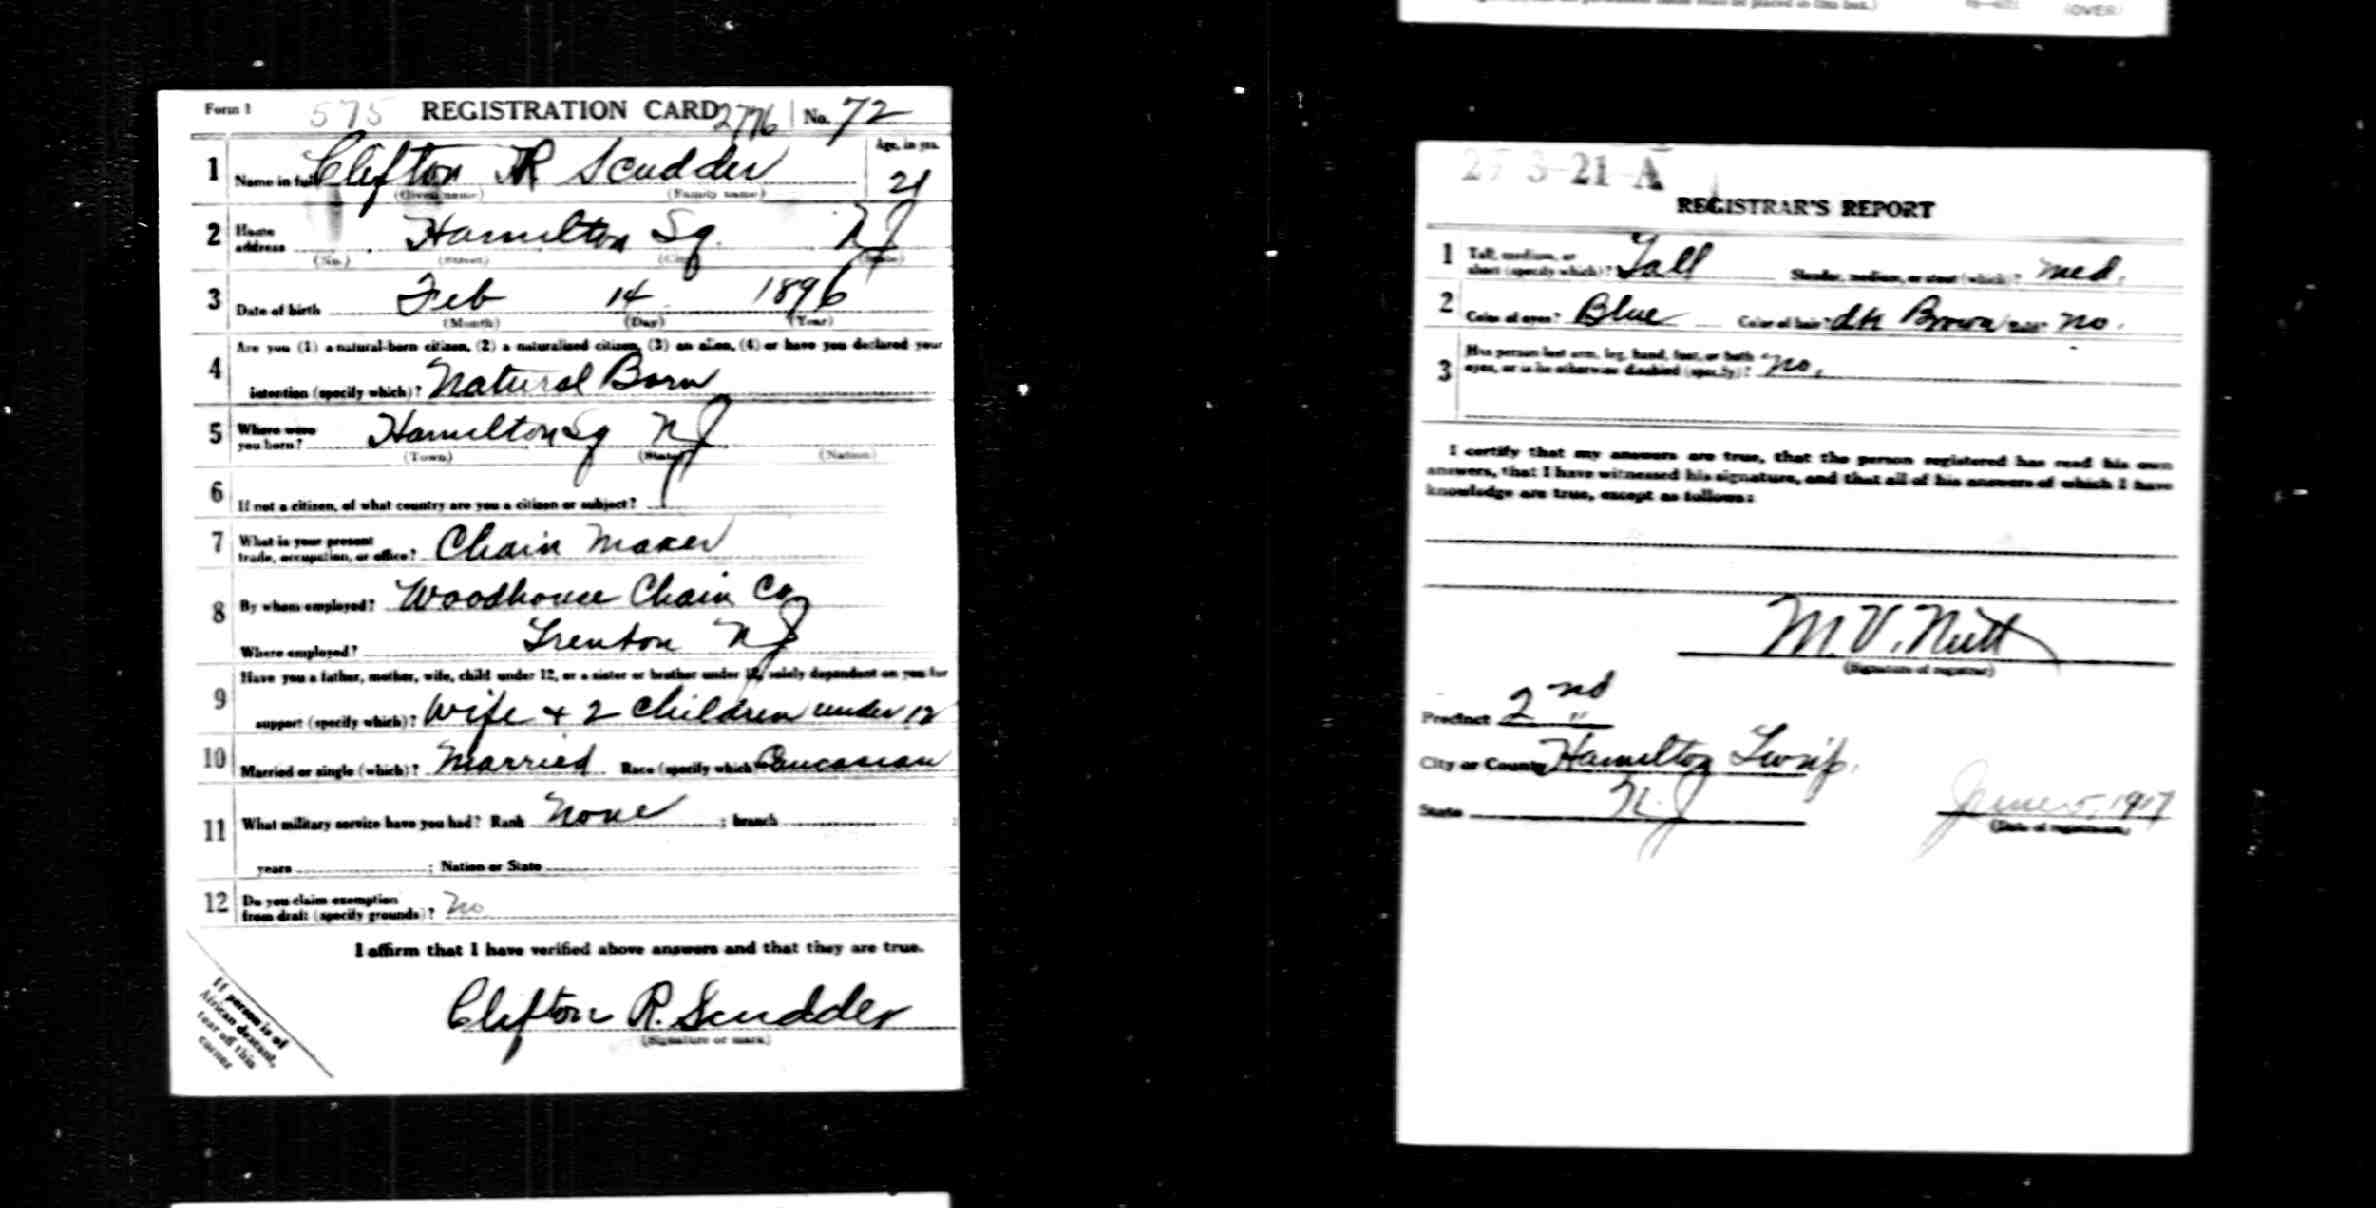 (OVER)
Form 1 575 REGISTRATION CARD 2776 No. 72
1 Name in full Clifton R Scudder Age, in yrs. 21
(Given name) (Family name)
2 Home address Hamilton Sq. NJ
(No.) (Street) (City) (State)
3 Date of birth Feb 14 1896
(Month) (Day) (Year)
Are you (1) a natural-born citizen, (2) a naturalized citizen, (3) an alien, (4) or have you declared your
4 intention (specify which)? Natural Born
5 Where were you born? Hamilton Sq NJ
(Town) (State) (Nation)
6 If not a citizen, of what country are you a citizen or subject?
7 What is your present
trade, occupation, or office? Chain Maker
8 By whom employed? Woodhouse Chain Co
Where employed? Trenton NJ
Have you a father, mother, wife, child under 12, or a sister or brother under 12, solely dependent on you for
9 support (specify which)? Wife + 2 children under 12
10 Married or single (which)? Married Race (specify which)? Caucasian
11 What military service have you had? Rank None ; branch
years ; Nation or State
12 Do you claim exemption
from draft (specify grounds)? No
I affirm that I have verified above answers and that they are true.
Clifton R. Scudder
(Signature or mark)
If person is of
African descent,
tear off this
corner
21 A
REGISTRAR'S REPORT
1 Tall, medium, or
short (specify which)? Tall Slender, medium, or stout (which)? med.
2 Color of eyes? Blue Color of hair? dk Brown Bald? no.
3 Has person lost arm, leg, hand, foot, or both
eyes, or is he otherwise disabled (specify)? no.
I certify that my answers are true, that the person registered has read his own
answers, that I have witnessed his signature, and that all of his answers of which I have
knowledge are true, except as follows:
M. V. Nutt
(Signature of registrar)
Precinct 2nd
City or County Hamilton Twsp.
State N.J. June 5, 1917
(Date of registration)